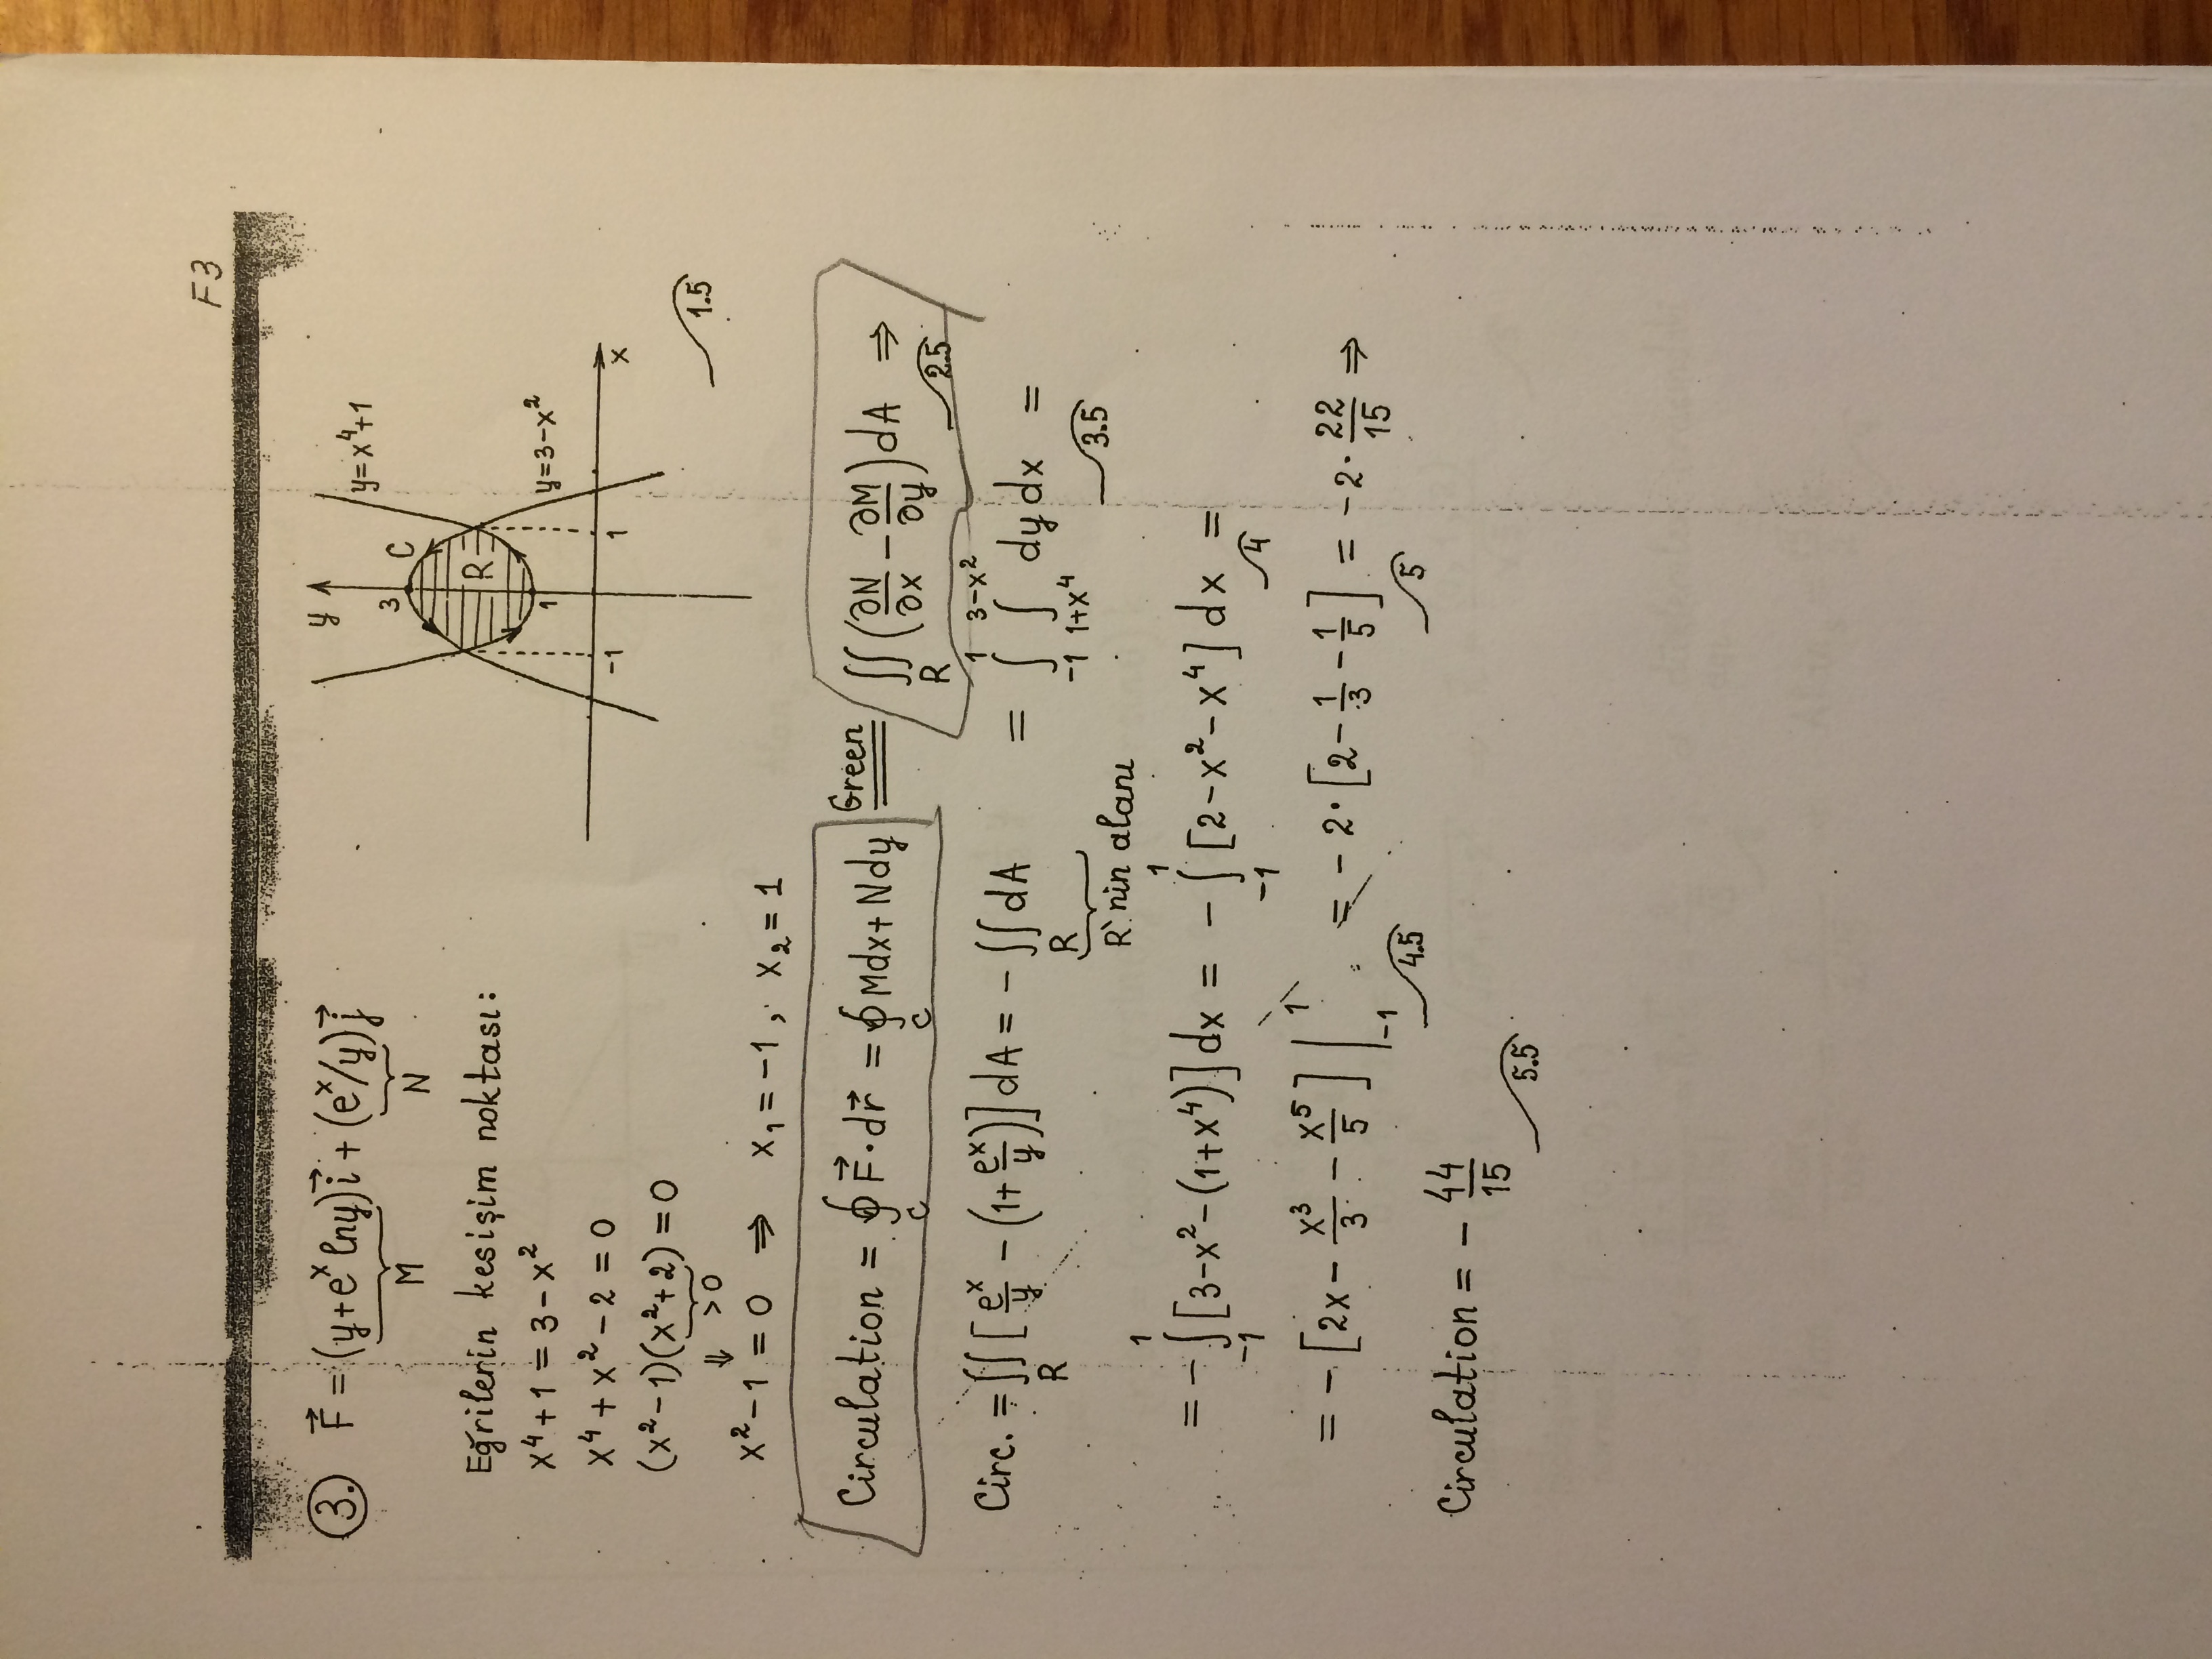 F3
3. F⃗ = (y+eˣ lny)i⃗ + (eˣ/y)j⃗
M N
y
y=x⁴+1
3 C
R
1
y=3-x²
-1 1 x
1.5
Eğrilerin kesişim noktası:
x⁴+1 = 3-x²
x⁴+x²-2 = 0
(x²-1)(x²+2) = 0
⇓ >0
x²-1 = 0 ⇒ x₁=-1, x₂=1
Circulation = ∮_C F⃗·dr⃗ = ∮_C Mdx+Ndy =(Green) ∬_R (∂N/∂x - ∂M/∂y) dA ⇒
2.5
Circ. = ∬_R [eˣ/y - (1+eˣ/y)] dA = - ∬_R dA = ∫_{-1}^{1} ∫_{1+x⁴}^{3-x²} dy dx =
R'nin alanı
3.5
= -∫_{-1}^{1} [3-x²-(1+x⁴)] dx = -∫_{-1}^{1} [2-x²-x⁴] dx =
4
= -[2x - x³/3 - x⁵/5] |_{-1}^{1} = -2·[2 - 1/3 - 1/5] = -2·22/15 ⇒
4.5 5
Circulation = - 44/15
5.5